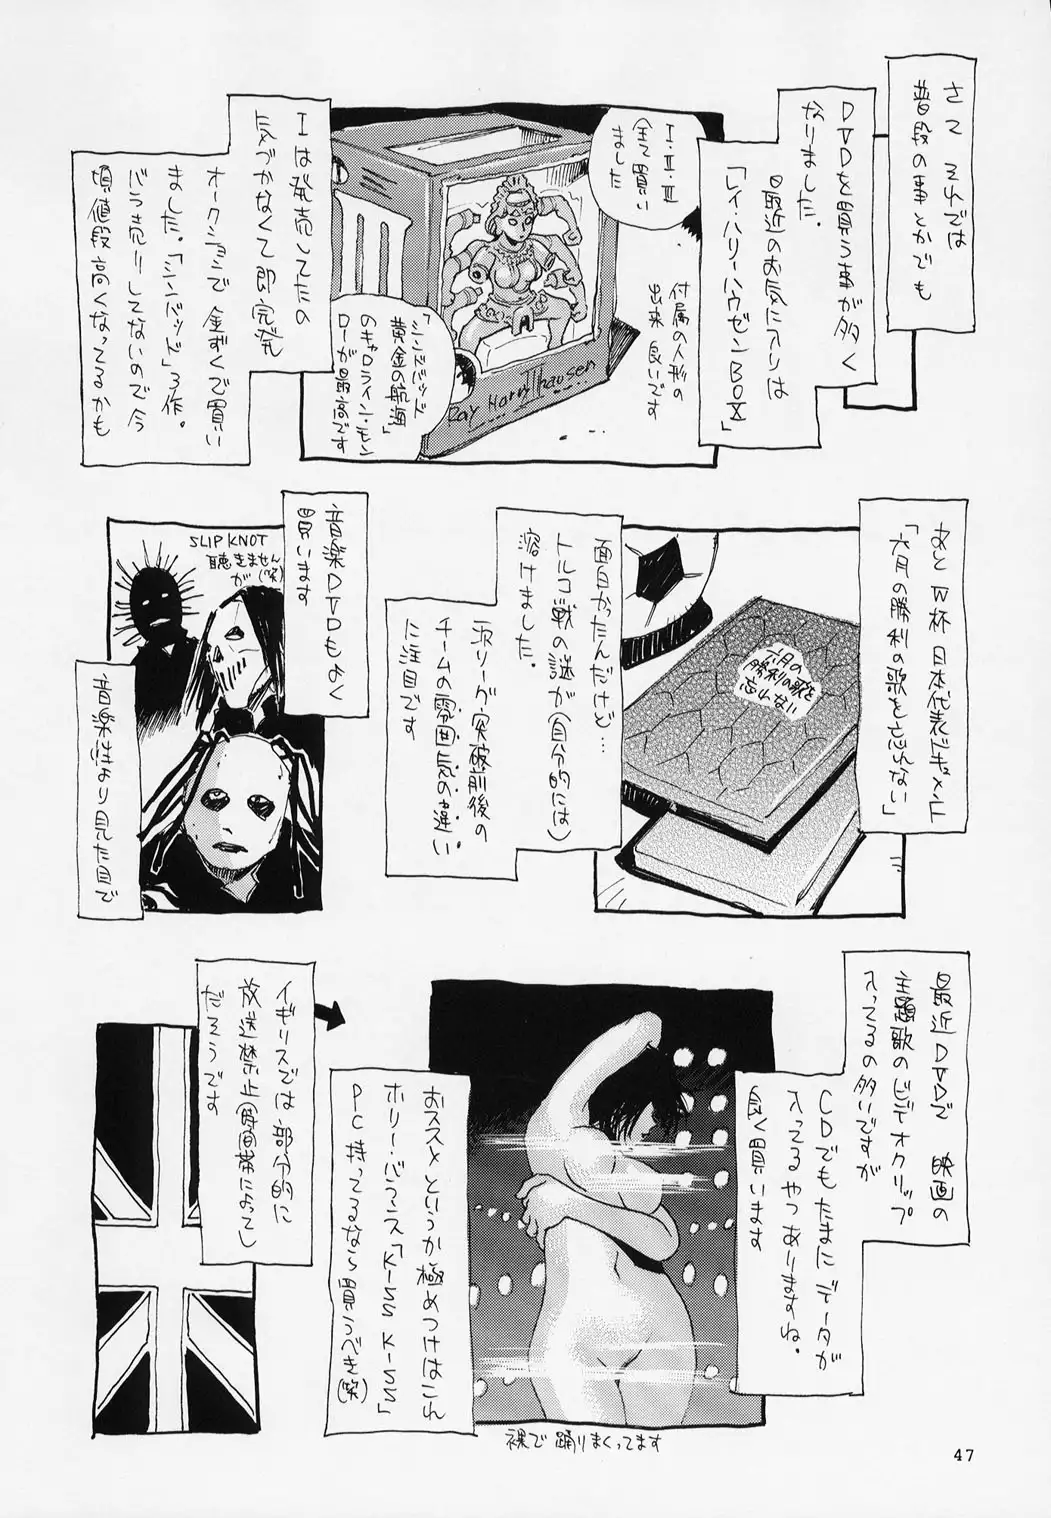 さて それでは
普段の事とかでも
DVDを買う事が多く
なりました.
最近のお気に入りは
「レイ・ハリーハウゼンBOX」
I・II・III
全て買い
ました
付属の人形の
出来 良いです
Ray Harryhausen
「シンドバッド
黄金の航海」
のキャロライン・モン
ローが最高です
Iは発売してたの
気づかなくて即完売
オークションで金ずくで買い
ました。「シンバッド」3作。
バラ売りしてないので今
頃値段高くなってるかも
あと W杯 日本代表ドキュメント
「六月の勝利の歌を忘れない」
六月の
勝利の歌を
忘れない
面白かったんだけど…
トルコ戦の謎が(自分的には)
溶けました.
次リーグ突破前後の
チームの雰囲気の違い.
に注目です
音楽DVDもよく
買います
SLIP KNOT
聴きません
が(笑)
音楽性より見た目で
最近DVDで 映画の
主題歌のビデオクリップ
入ってるの多いですが
CDでもたまにデータが
入ってるやつありますね.
良く買います
おススメというか極めつけはこれ
ホリー・バランス「KISS KISS」
PC持ってるなら買うべき(笑)
イギリスでは部分的に
放送禁止(時間帯によって)
だそうです
裸で踊りまくってます
47